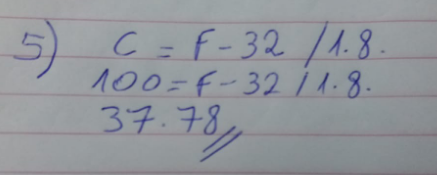 5) C = F - 32 / 1.8.
100 = F - 32 / 1.8.
37.78